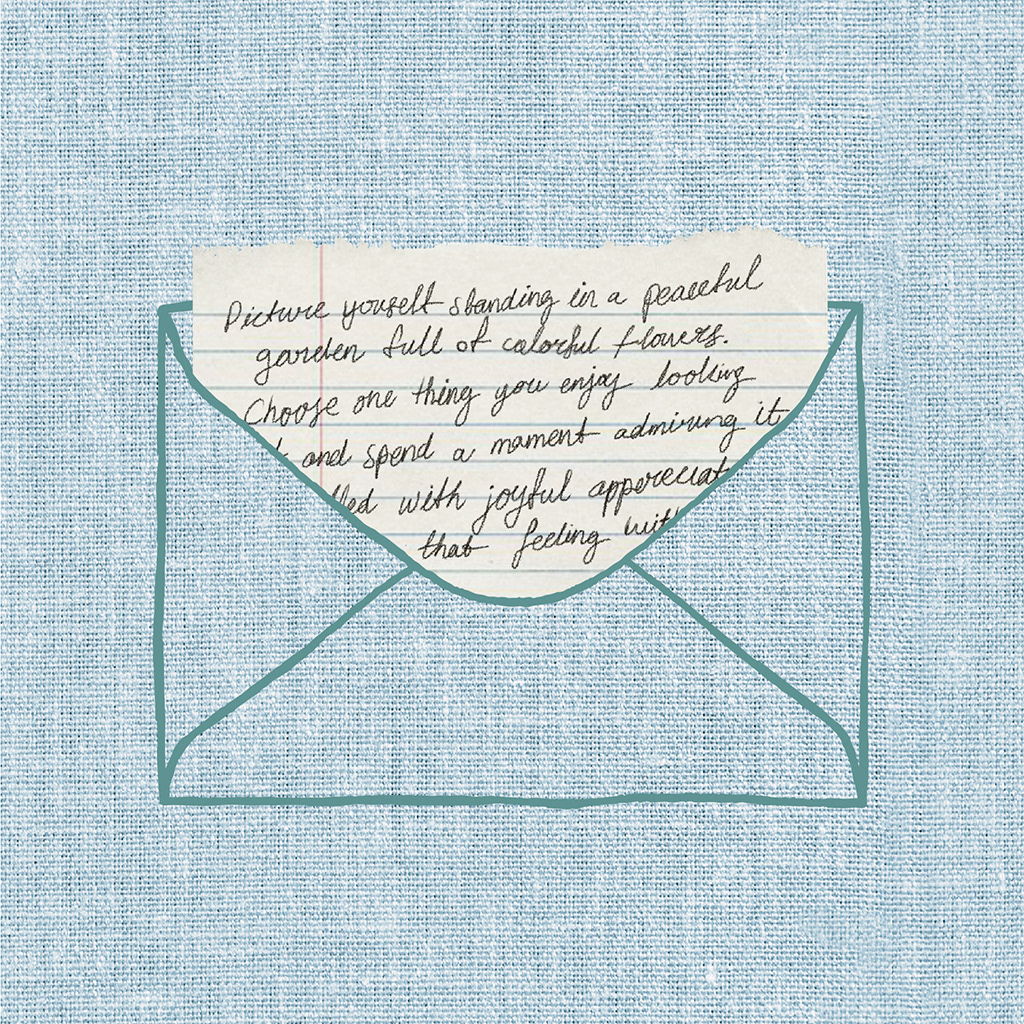 Picture youself standing in a peaceful
garden full of colorful flowers.
Choose one thing you enjoy looking
and spend a moment admiring it
with joyful appereciat
that feeling wit